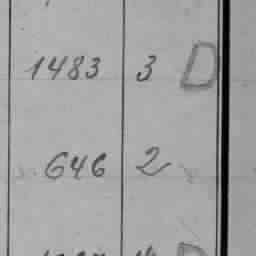 1483 3 D
646 2